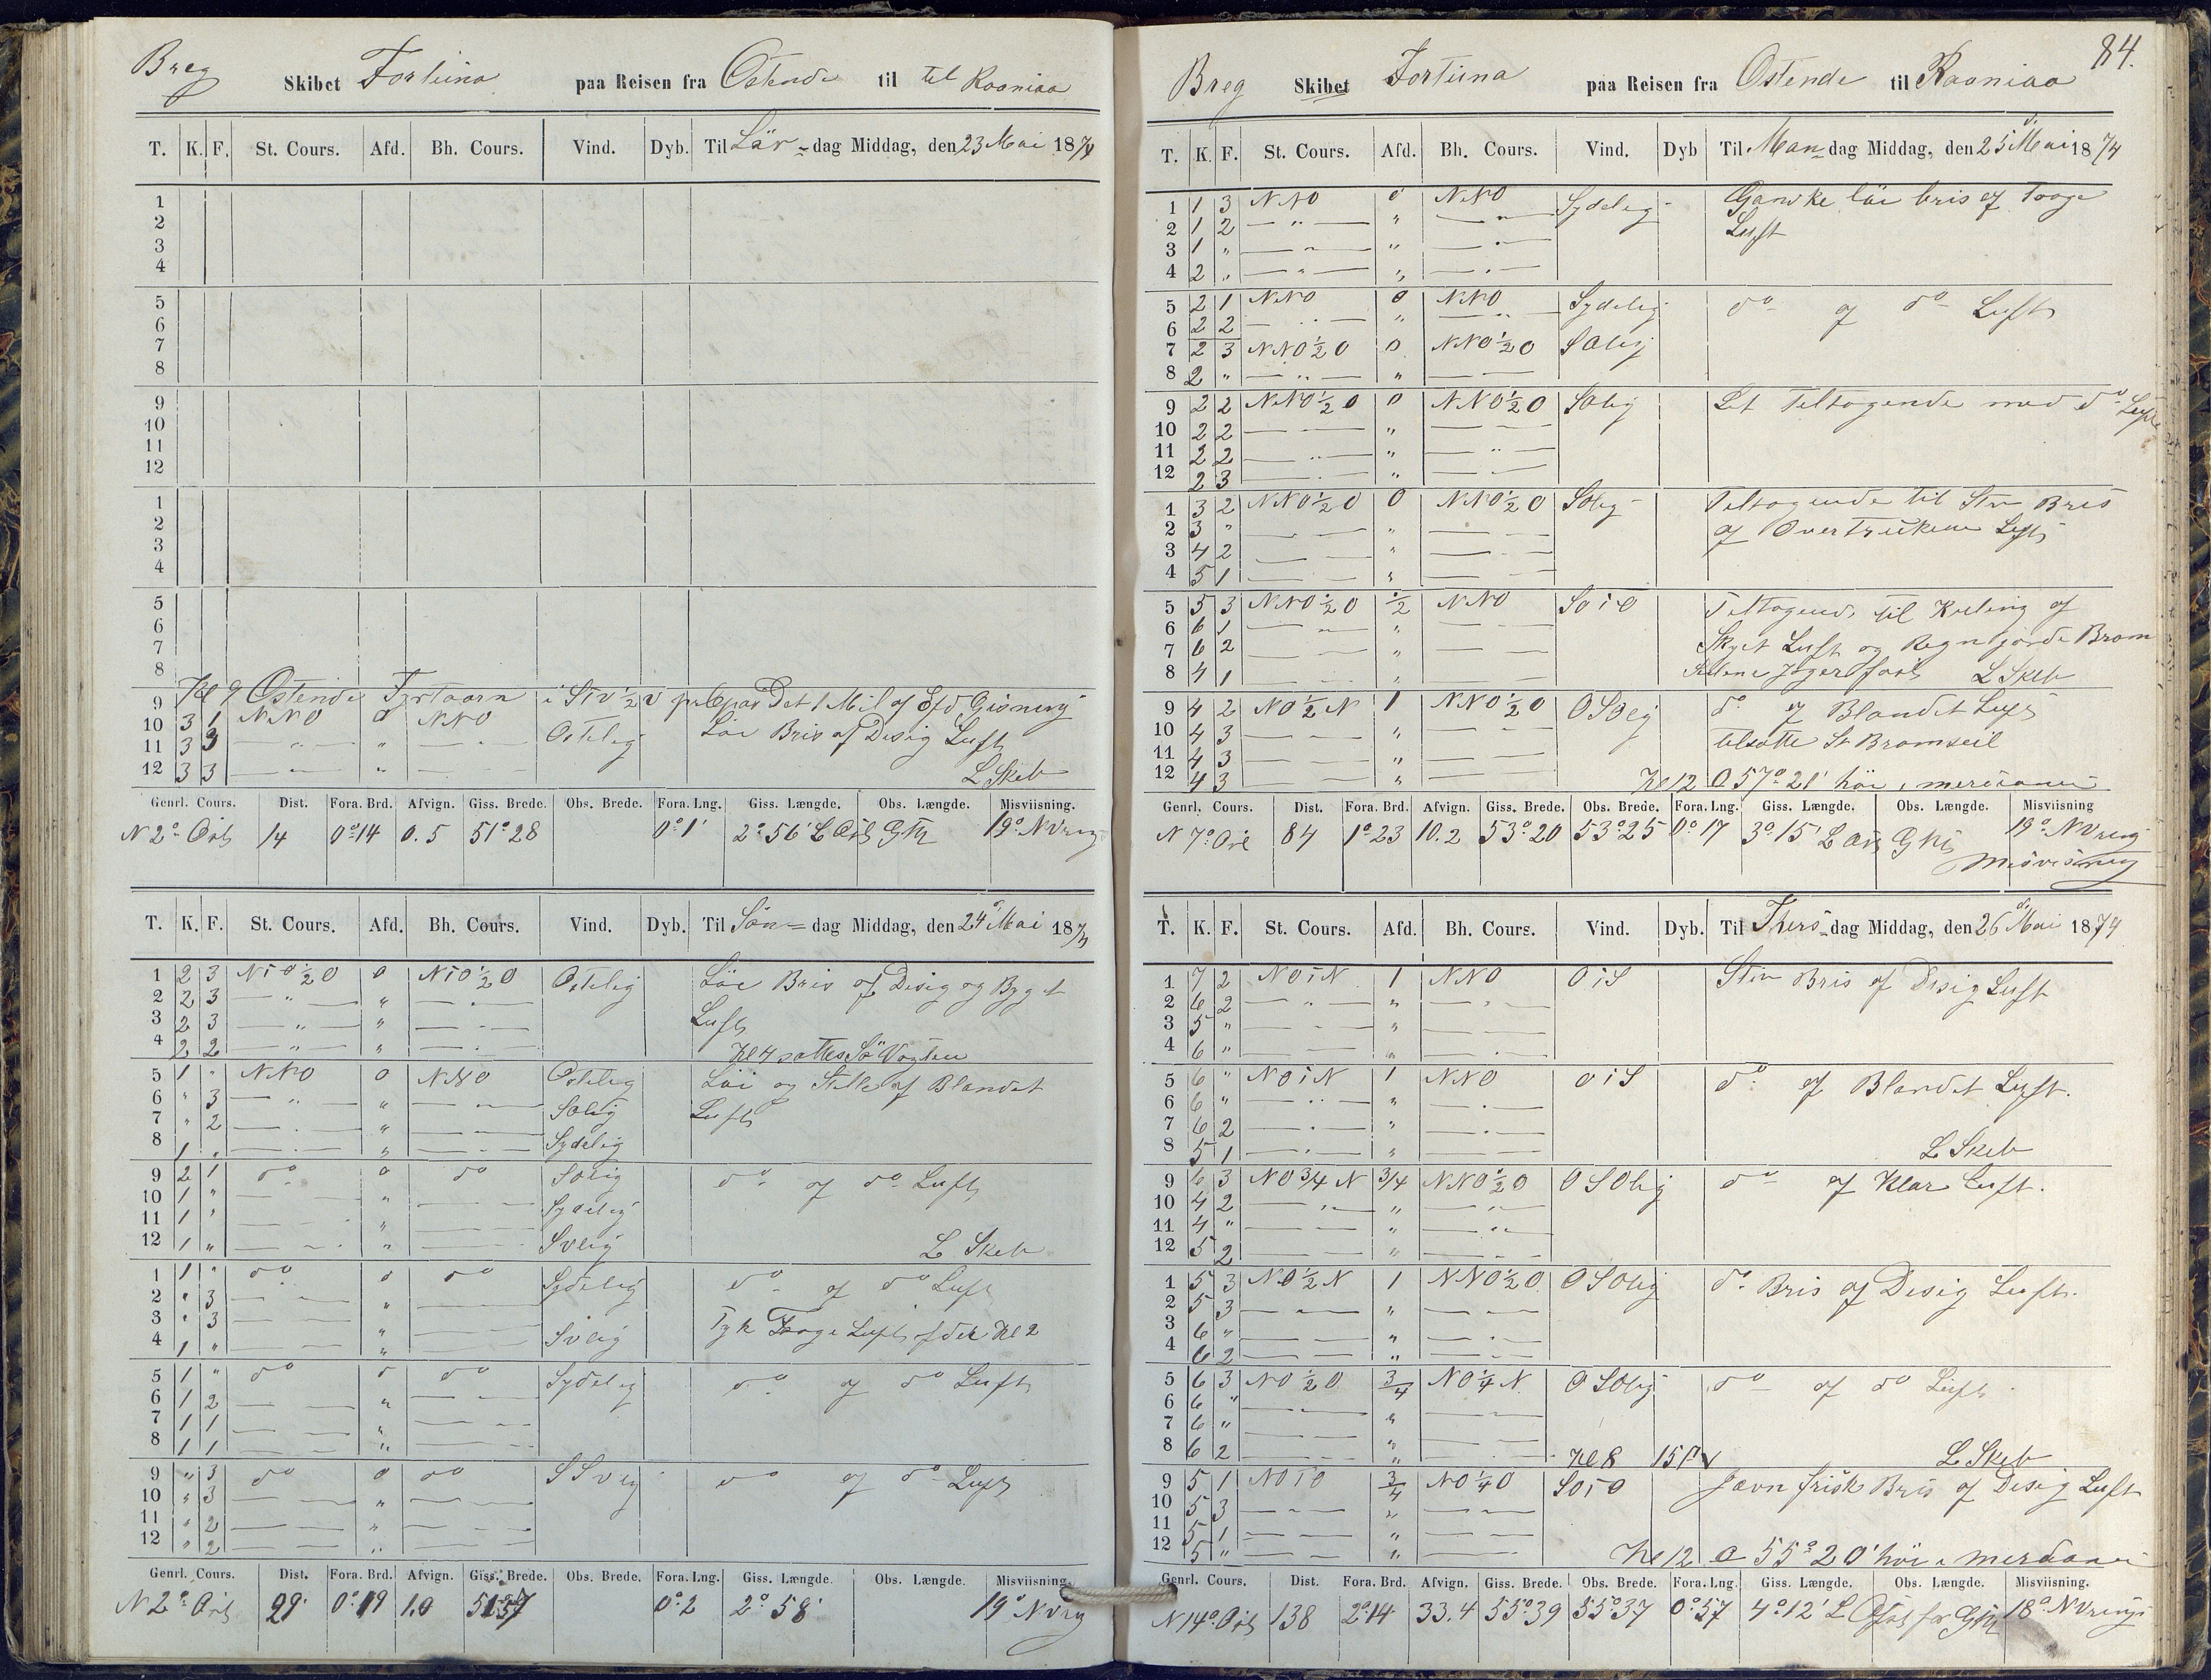 Breg Skibet Fortuna paa Reisen fra Ostende til til Raaniaa
T. K. F. St. Cours. Afd. Bh. Cours. Vind. Dyb. Til Lör-dag Middag, den 23 Mai 1874
1
2
3
4
5
6
7
8
9
10
11
12
1
2
3
4
5
6
7
8
9 Kl 9 Ostende Fyrtaarn i StV½V Det 1 Mil af Gisning
10 3 1 NNO 0 NNO
11 3 3 — " — " — " — Ostelig Löi Bris af Disig Luft
12 3 3 — " — " — " — L Skeb
Genrl. Cours. Dist. Fora. Brd. Afvign. Giss. Brede. Obs. Brede. Fora. Lng. Giss. Længde. Obs. Længde. Misviisning.
N 2° Ost 14 0°14 0.5 51°28 0°1' 2°56' L Ost G 19° NVring
T. K. F. St. Cours. Afd. Bh. Cours. Vind. Dyb. Til Sön-dag Middag, den 24 Mai 1874
1 2 3 NtO½O 0 NtO½O Ostelig Löi Bris af Disig og Byget
2 2 3 — " — " — " —
3 2 3 — " — " — " — Luft
4 2 2 — " — " — " — Kl 4 sattes Sö Vagten
5 1 " NNO 0 NNO Ostelig Löi og Stille af Blandet
6 " 3 — " — " — " — SOlig Luft
7 " 2 — " — " — " —
8 1 " — " — " — " — Sydelig
9 2 1 do 0 do SOlig do af do Luft
10 1 " — " — " — " — Sydelig
11 1 " — " — " — " —
12 1 " — " — " — " — SVlig L Skeb
1 1 " do 0 do Sydelig do af do Luft
2 " 3 — — " — —
3 " 3 — — " — — SVlig Tyk Taage Luft efter Kl 2
4 1 " — — " — —
5 1 " do 0 do Sydelig do af do Luft
6 1 2 — — " — —
7 1 1 — — " — —
8 1 1 — — " — —
9 " 3 do 0 do SSVlig do af do Luft
10 " 3 — — " — —
11 " 2 — — " — —
12 " 2 — — " — —
Genrl. Cours. Dist. Fora. Brd. Afvign. Giss. Brede. Obs. Brede. Fora. Lng. Giss. Længde. Obs. Længde. Misviisning.
N 2° Ost 29 0°19 1.0 51°57 0°2 2°58' 19° NVrig
84.
Breg Skibet Fortuna paa Reisen fra Ostende til Raaniaa
T. K. F. St. Cours. Afd. Bh. Cours. Vind. Dyb Til Man-dag Middag, den 25 Mai 1874
1 1 3 NNO 0 NNO Sydelig Ganske löi bris af Taage
2 1 2 — " — " — " — Luft
3 1 " — " — " — " —
4 2 " — " — " — " —
5 2 1 NNO 0 NNO Sydelig do af do Luft
6 2 2 — " — " — " —
7 2 3 NNO½O 0 NNO½O SOlig
8 2 " — " — " — —
9 2 2 NNO½O 0 NNO½O SOlig Let Teltagende med do Luft
10 2 2 — — " — —
11 2 2 — " — " — " —
12 2 3 — — " — —
1 3 2 NNO½O 0 NNO½O SOlig Teltagende til Stiv Bris
2 3 " — — " — — af Overtrukken Luft
3 4 2 — — " — —
4 5 1 — — " — —
5 5 3 NNO½O ½ NNO SOtO Teltagende til Kuling af
6 6 1 — " — " — — Skyet Luft og Regn gjorde Bram
7 6 2 — — " — —
8 4 1 — — " — — Jager fast L Skeb
9 4 2 NO½N 1 NNO½O OSOlig do af Blandet Luft
10 4 3 — — " — — tilsatte St Bramseil
11 4 3 — — " — —
12 4 3 — — " — — Kl 12 O 57°21' höi i meridianen
Genrl. Cours. Dist. Fora. Brd. Afvign. Giss. Brede. Obs. Brede. Fora. Lng. Giss. Længde. Obs. Længde. Misviisning
N 7° Ost 84 1°23 10.2 53°20 53°25 0°17 3°15' L Ost G 19° NVring
Misvisning
T. K. F. St. Cours. Afd. Bh. Cours. Vind. Dyb. Til Thers-dag Middag, den 26 Mai 1874
1 7 2 NOtN 1 NNO OtS Stiv Bris af Disig Luft
2 6 2 — " — " — " —
3 5 " — " — " — —
4 6 " — — " — " —
5 6 " NOtN 1 NNO OtS do af Blandet Luft.
6 6 " — " — " — " —
7 6 2 — " — " — " —
8 5 1 — " — " — — L Skeb
9 6 3 NO¾N ¾ NNO½O OSOlig do af Klar Luft.
10 4 2 — " — " — " —
11 4 " — — " — " —
12 5 2 — — " — —
1 5 3 NO½N 1 NNO½O OSOlig do Bris af Disig Luft.
2 5 3 — " — " — —
3 6 " — — " — " —
4 6 2 — — " — —
5 6 3 NO½O ¾ NO¼N OSOlig do af do Luft
6 6 " — " — " — —
7 6 " — — " — —
8 6 2 — — " — — Kl 8 15 L Skeb
9 5 1 NOtO ¾ NO¼O SOtO Jævn frisk Bris af Disig Luft
10 5 3 — " — " — —
11 5 1 — — " — —
12 5 " — — " — — Kl 12 O 55°20' höi i meridianen
Genrl. Cours. Dist. Fora. Brd. Afvign. Giss. Brede. Obs. Brede. Fora. Lng. Giss. Længde. Obs. Længde. Misviisning.
N 14° Ost 138 2°14 33.4 55°39 55°37 0°57 4°12' L Ost for G 18° NVring